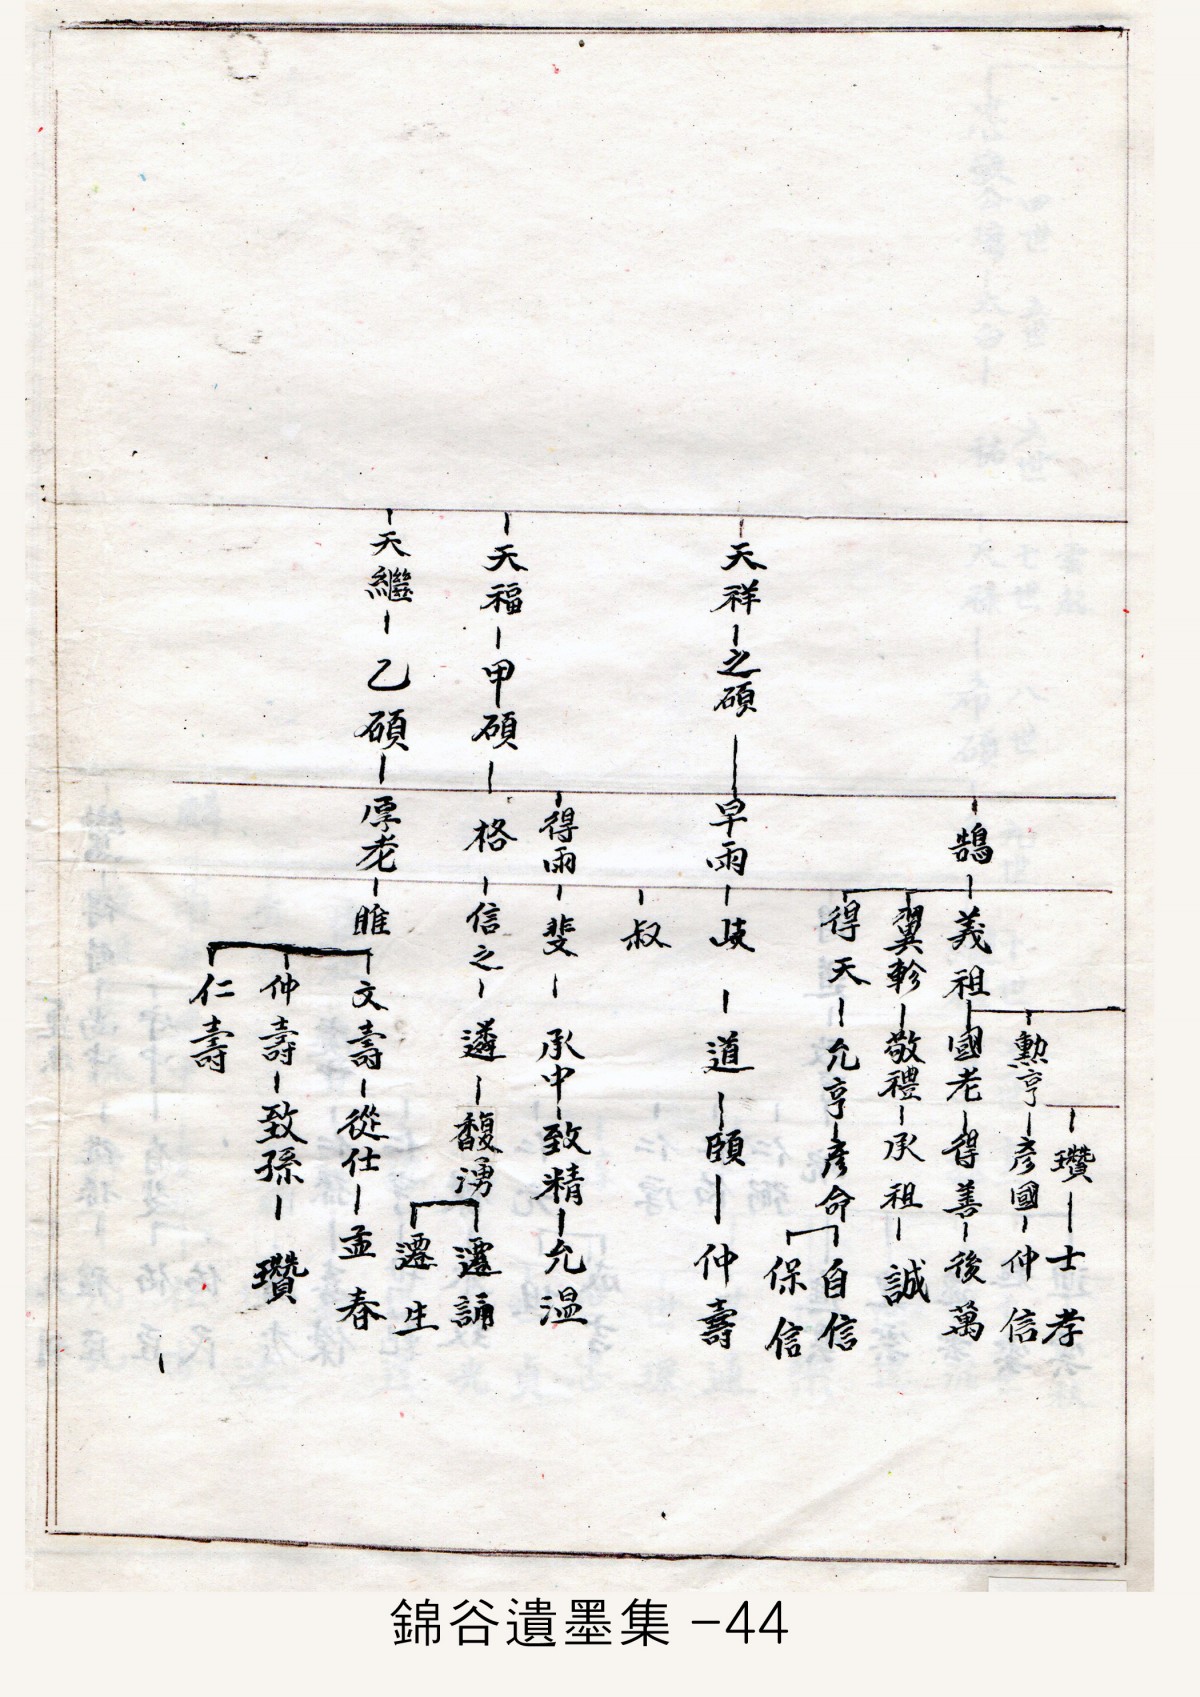 瓚 士孝
勲亨 彦國 仲信
鵠 義祖 國老 得善 後萬
翼軫 敬禮 承祖 誠
得天 允亨 彦命 自信
保信
天祥 之碩 早雨 岐 道 頤 仲壽
叔
得雨 斐 承中 致精 允温
天福 甲碩 格 信之 遴 馥湧 遷誦
遷生
天繼 乙碩 厚老 睢 文壽 從仕 孟春
仲壽 致孫 瓚
仁壽
錦谷遺墨集 -44